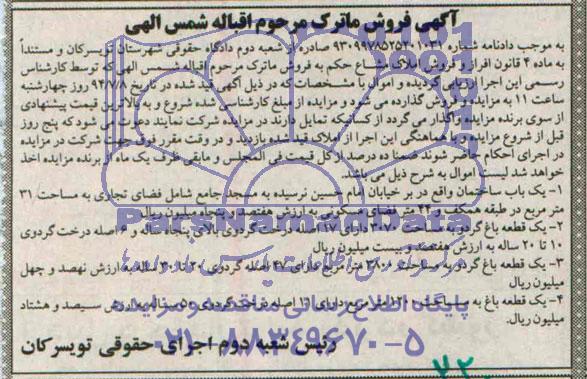 آگهی فروش ماترک مرحوم اقباله شمس الهی
به موجب دادنامه شماره ۹۳۰۹۹۷۸۵۲۵۲۰۱۰۳۱ صادره از شعبه دوم دادگاه حقوقی شهرستان تویسرکان و مستنداً
به ماده ۴ قانون افراز و فروش املاک مشاع حکم به فروش ماترک مرحوم اقباله شمس الهی که توسط کارشناس
رسمی این اجرا ارزیابی گردیده و اموال با مشخصات که در ذیل آگهی قید شده در تاریخ ۹۴/۷/۸ روز چهارشنبه
ساعت ۱۱ به مزایده و فروش گذارده می شود و مزایده از مبلغ کارشناسی شده شروع و به بالاترین قیمت پیشنهادی
از سوی برنده مزایده واگذار می گردد از کسانیکه تمایل دارند در مزایده شرکت نمایند دعوت می شود که پنج روز
قبل از شروع مزایده و با هماهنگی این اجرا از املاک قید شده بازدید و در وقت مقرر فوق جهت شرکت در مزایده
در اجرای احکام حاضر شوند ضمنا ده درصد از کل قیمت فی المجلس و مابقی ظرف یک ماه از برنده مزایده اخذ
خواهد شد لیست اموال به شرح ذیل می باشد.
۱- یک باب ساختمان واقع در بر خیابان امام خمینی نرسیده به مسجد جامع شامل فضای تجاری به مساحت ۳۱
متر مربع در طبقه همکف و ۲۴ متر فضای مسکونی به ارزش هفتصد و پنجاه میلیون ریال
۲- یک قطعه باغ گردو به مساحت ۳۰۷۰ دارای ۱۷ اصله درخت گردوی بالای پنجاه ساله و ۶ اصله درخت گردوی
۱۰ تا ۲۰ ساله به ارزش هفتصد و بیست میلیون ریال
۳- یک قطعه باغ گردو به مساحت ۳۸۰۰ متر مربع دارای ۴۷ اصله گردوی ۲۰ تا ۳۰ ساله به ارزش نهصد و چهل
میلیون ریال
۴- یک قطعه باغ به مساحت ۱۲۰۰ متر مربع دارای ۱۱ اصله درخت گردوی ۵۰ ساله به ارزش سیصد و هشتاد
میلیون ریال.
رئیس شعبه دوم اجرای حقوقی تویسرکان
پایگاه اطلاع رسانی مناقصه و مزایده
۰۲۱-۸۸۳۴۹۶۷۰-۵